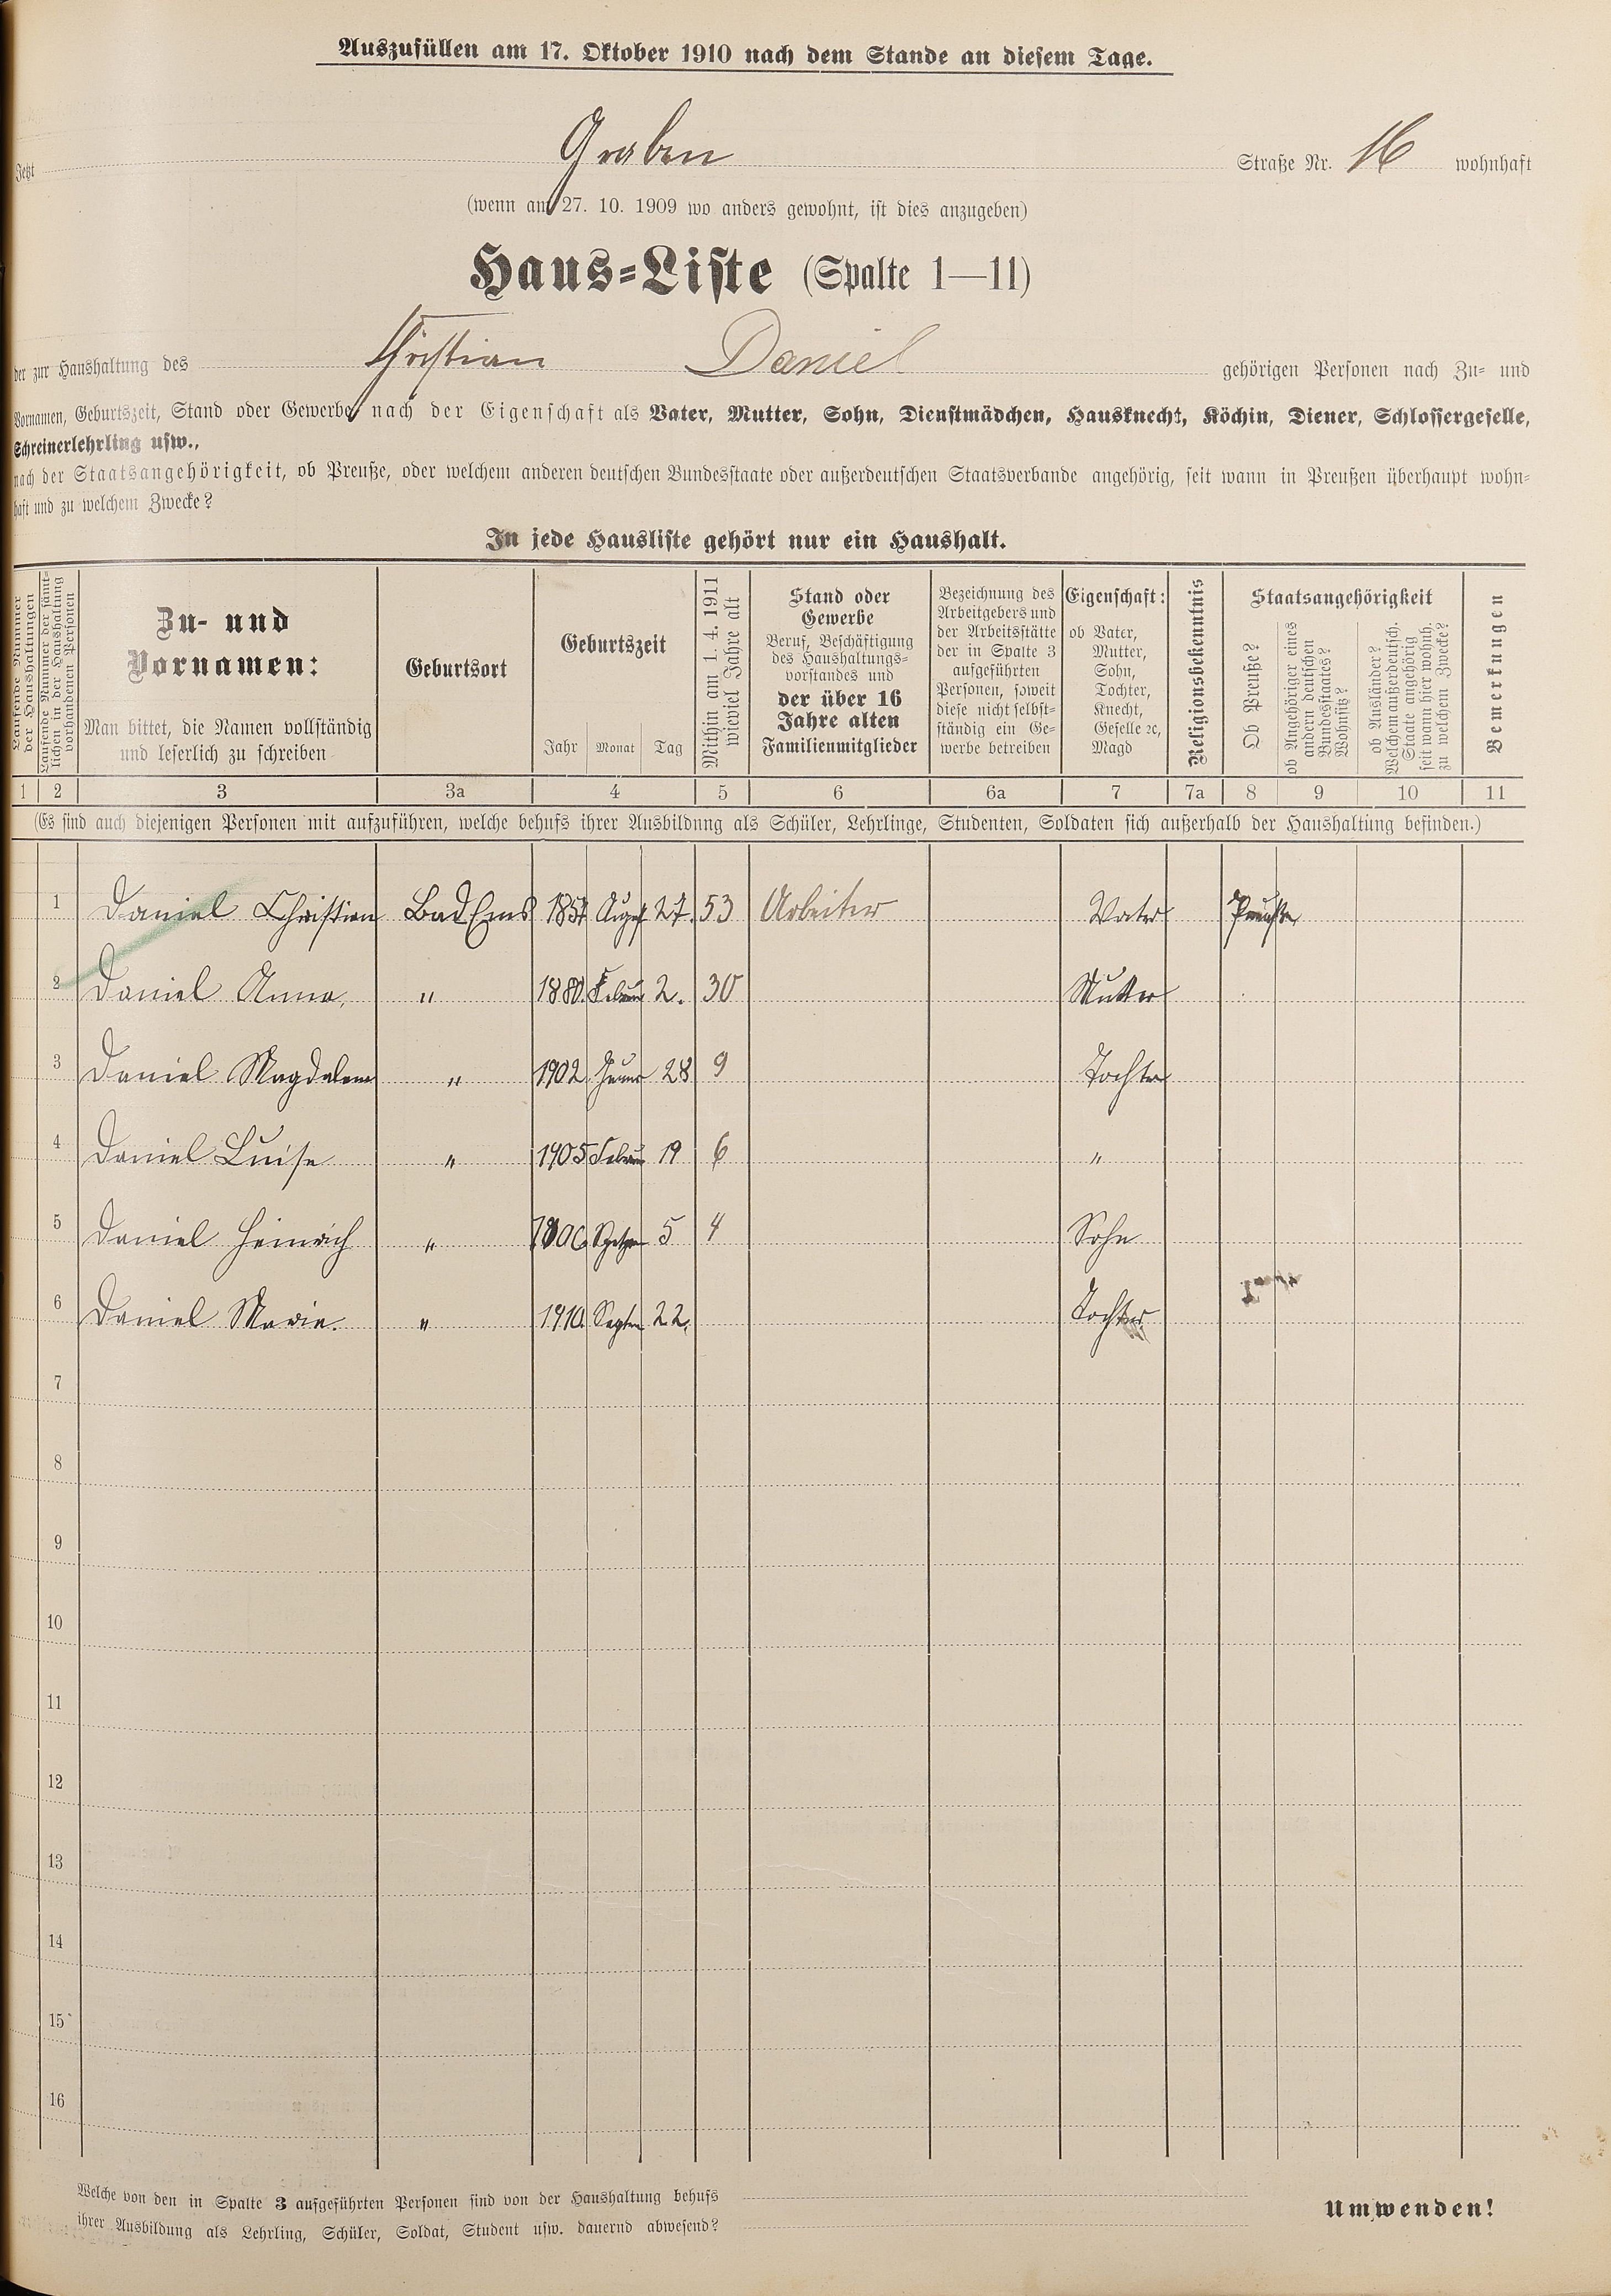 Auszufüllen am 17. Oktober 1910 nach dem Stande an diesem Tage.
Jetzt Graben Straße Nr. 16 wohnhaft
(wenn am 27. 10. 1909 wo anders gewohnt, ist dies anzugeben)
Haus-Liste (Spalte 1—11)
der zur Haushaltung des Christian Daniel gehörigen Personen nach Zu- und
Vornamen, Geburtszeit, Stand oder Gewerbe, nach der Eigenschaft als Vater, Mutter, Sohn, Dienstmädchen, Hausknecht, Köchin, Diener, Schlossergeselle,
Schreinerlehrling usw.,
nach der Staatsangehörigkeit, ob Preuße, oder welchem anderen deutschen Bundesstaate oder außerdeutschen Staatsverbande angehörig, seit wann in Preußen überhaupt wohn-
haft und zu welchem Zwecke?
In jede Hausliste gehört nur ein Haushalt.
Laufende Nummer
der Haushaltungen
Laufende Nummer der sämt-
lichen in der Haushaltung
vorhandenen Personen
Zu- und
Vornamen:
Man bittet, die Namen vollständig
und leserlich zu schreiben
Geburtsort
Geburtszeit
Jahr Monat Tag
Mithin am 1. 4. 1911
wieviel Jahre alt
Stand oder
Gewerbe
Beruf, Beschäftigung
des Haushaltungs-
vorstandes und
der über 16
Jahre alten
Familienmitglieder
Bezeichnung des
Arbeitgebers und
der Arbeitsstätte
der in Spalte 3
aufgeführten
Personen, soweit
diese nicht selbst-
ständig ein Ge-
werbe betreiben
Eigenschaft:
ob Vater,
Mutter,
Sohn,
Tochter,
Knecht,
Geselle ec,
Magd
Religionsbekenntnis
Staatsangehörigkeit
Ob Preuße?
ob Angehöriger eines
andern deutschen
Bundesstaates?
Wohnsitz?
ob Ausländer?
Welchem außerdeutsch.
Staate angehörig
seit wann hier wohnh.
zu welchem Zwecke?
Bemerkungen
1 2 3 3a 4 5 6 6a 7 7a 8 9 10 11
(Es sind auch diejenigen Personen mit aufzuführen, welche behufs ihrer Ausbildung als Schüler, Lehrlinge, Studenten, Soldaten sich außerhalb der Haushaltung befinden.)
1 Daniel Christian Bad Ems 1857 August 27. 53 Arbeiter Vater Preuße
2 Daniel Anna, " 1880. Februar 2. 30 Mutter
3 Daniel Magdalena " 1902 Januar 28 9 Tochter
4 Daniel Luise " 1905 Februar 19 6 "
5 Daniel Heinrich " 1906 5 4 Sohn
6 Daniel Marie. " 1910. Septem 22. Tochter
7
8
9
10
11
12
13
14
15
16
Welche von den in Spalte 3 aufgeführten Personen sind von der Haushaltung behufs
ihrer Ausbildung als Lehrling, Schüler, Soldat, Student usw. dauernd abwesend?
Umwenden!